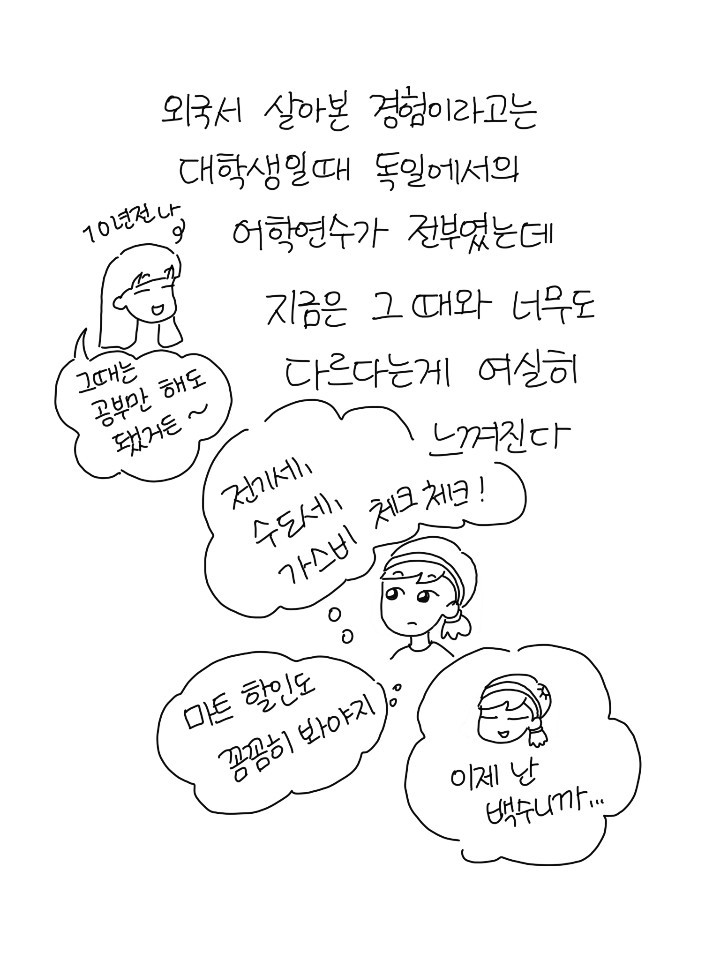 외국서 살아본 경험이라고는
대학생일때 독일에서의
어학연수가 전부였는데
지금은 그 때와 너무도
다르다는게 여실히
느껴진다
10년전 나
그때는
공부만 해도
됐거든~
전기세,
수도세,
가스비 체크체크!
마트 할인도
꼼꼼히 봐야지
이제 난
백수니까...